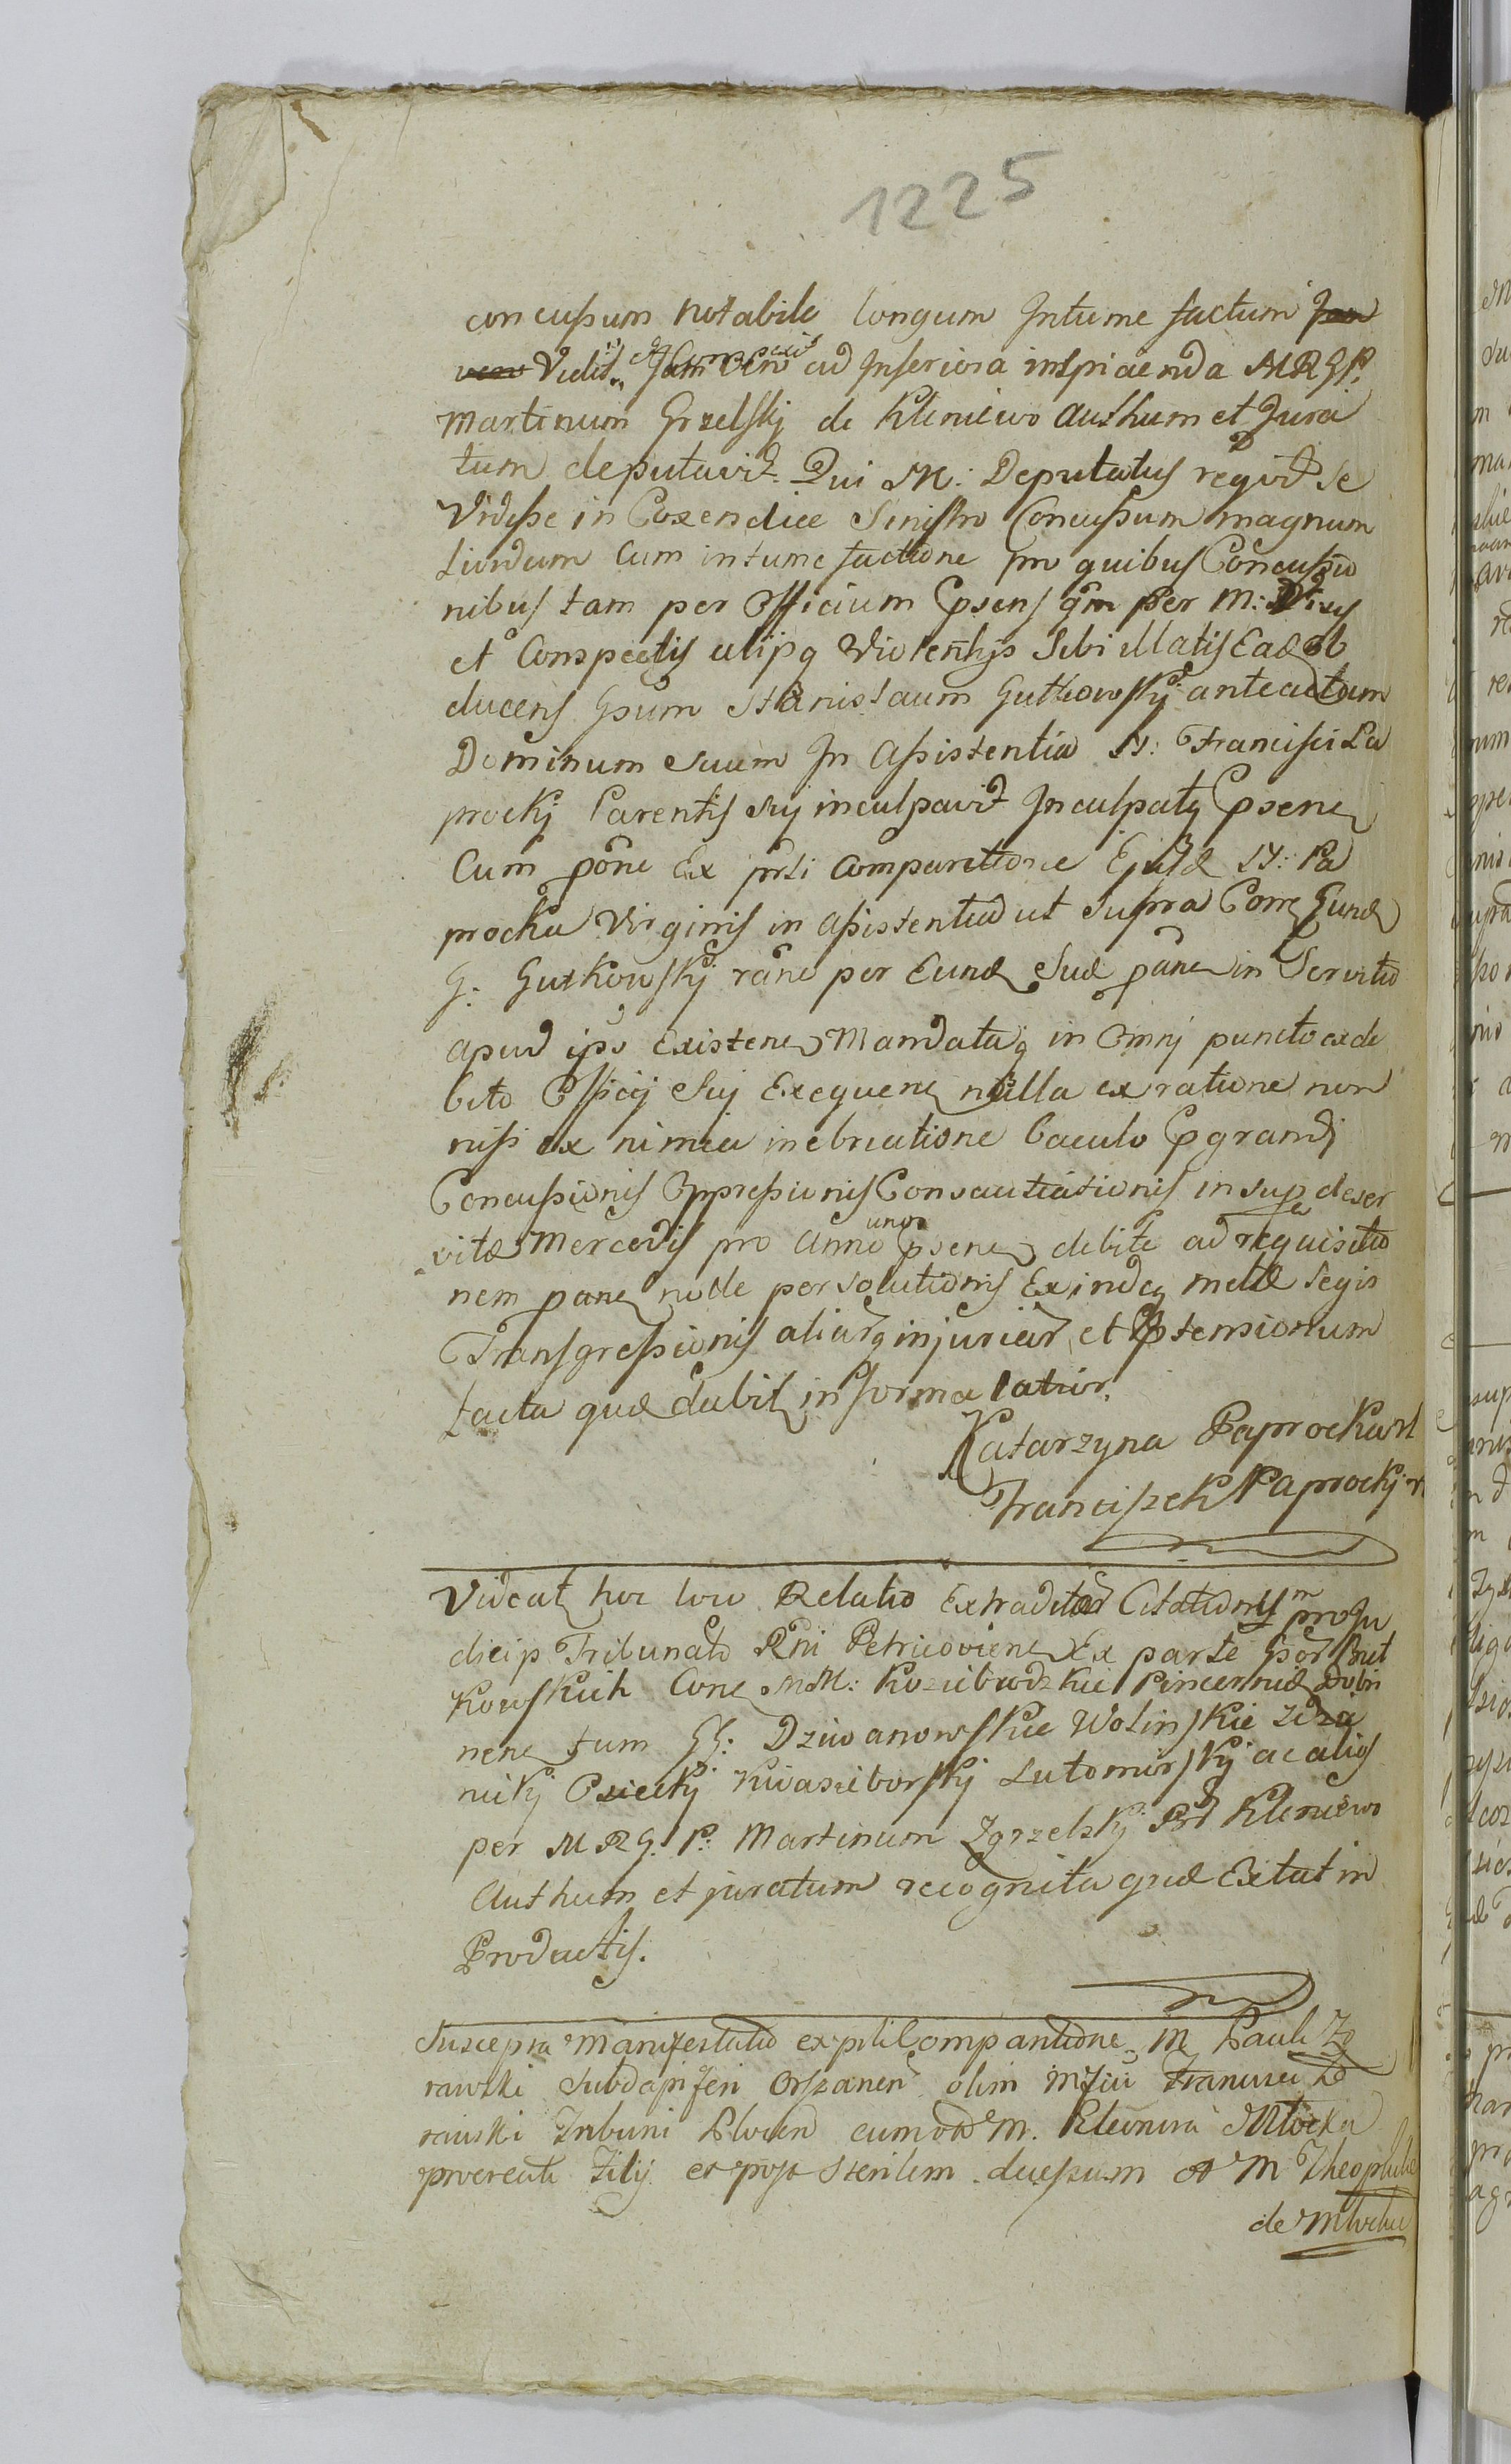 1225
concussum notabile longum Intume factum Jam
vero Vidit et Conspexit Jam vero ad Inferiora inspicienda MRGP.
Martinum Grzelskj de Kleniewo Authum et Jura
tum deputavit. Qui M: Deputatus regvit se
Vidisse in Coxendice Sinistro Concussum magnum
Lividum Cum intumefactione pro quibus Concussio
nibus tam per Officium Epsens qm per M:
et Conspectis alijsq Violentijs Sibi illatis Ead ob
ducens Gsum Stanislaum Gutkowskj anteactum
Dominum Suum In Assistentia N: Francisci Pa
prockj Parentis Sui inculpavit Inculpatq Epsene
Cum pone Ex prsti Comparitione Ejusd N: Pa
procka Virginis in Assistentia ut Supra Conq Eund
G: Gutkowskj rane per Eund Sud pane in Servitio
apud ips Existene Mandataq in Omnj puncto ex de
bito Officij Sui Exequene nulla ex ratione non
nisi ex nimia inebriatione baculo Epgrandj
Concussionis Oppressionis Consautiationis insup deser
vitæ Mercedis pro Anno uno psene debitæ ad requisitio
nem pane nolle persolutionis Exindeq metæ legis
Transgressionis aliarq injuriar et Ptensionum
facta quæ dabit in forma latior.
Katarzyna Paprocka
Franciszek Paprockj
Videat hoc loco Relatio Extraditar Citationum pro Ju
dicijs Tribunals Rni Petricoviene Ex parte Gsor Rut
kowskich Cone MM: Koziebrodzkie Pincernid Dobri
nene tum GG: Dziwanowskie Wolinskie
nickj Osieckj Kwasieborskj Lutomirskj ac alios
per MRG. P: Martinum Zgrzelskj Kleniewo
Authum et juratum recognita quæ Extat in
Productis.
Suscepta Manifestatio ex psti Compantione M Pauli Zo
rawski Subdapiferi Orszanen olim Mfici Francisci Zo
rawski Tribuni Plocen eum M. Eleonora Mlocka
procreati Filij et post Sterilem decessum M Theophile
de Mlocka